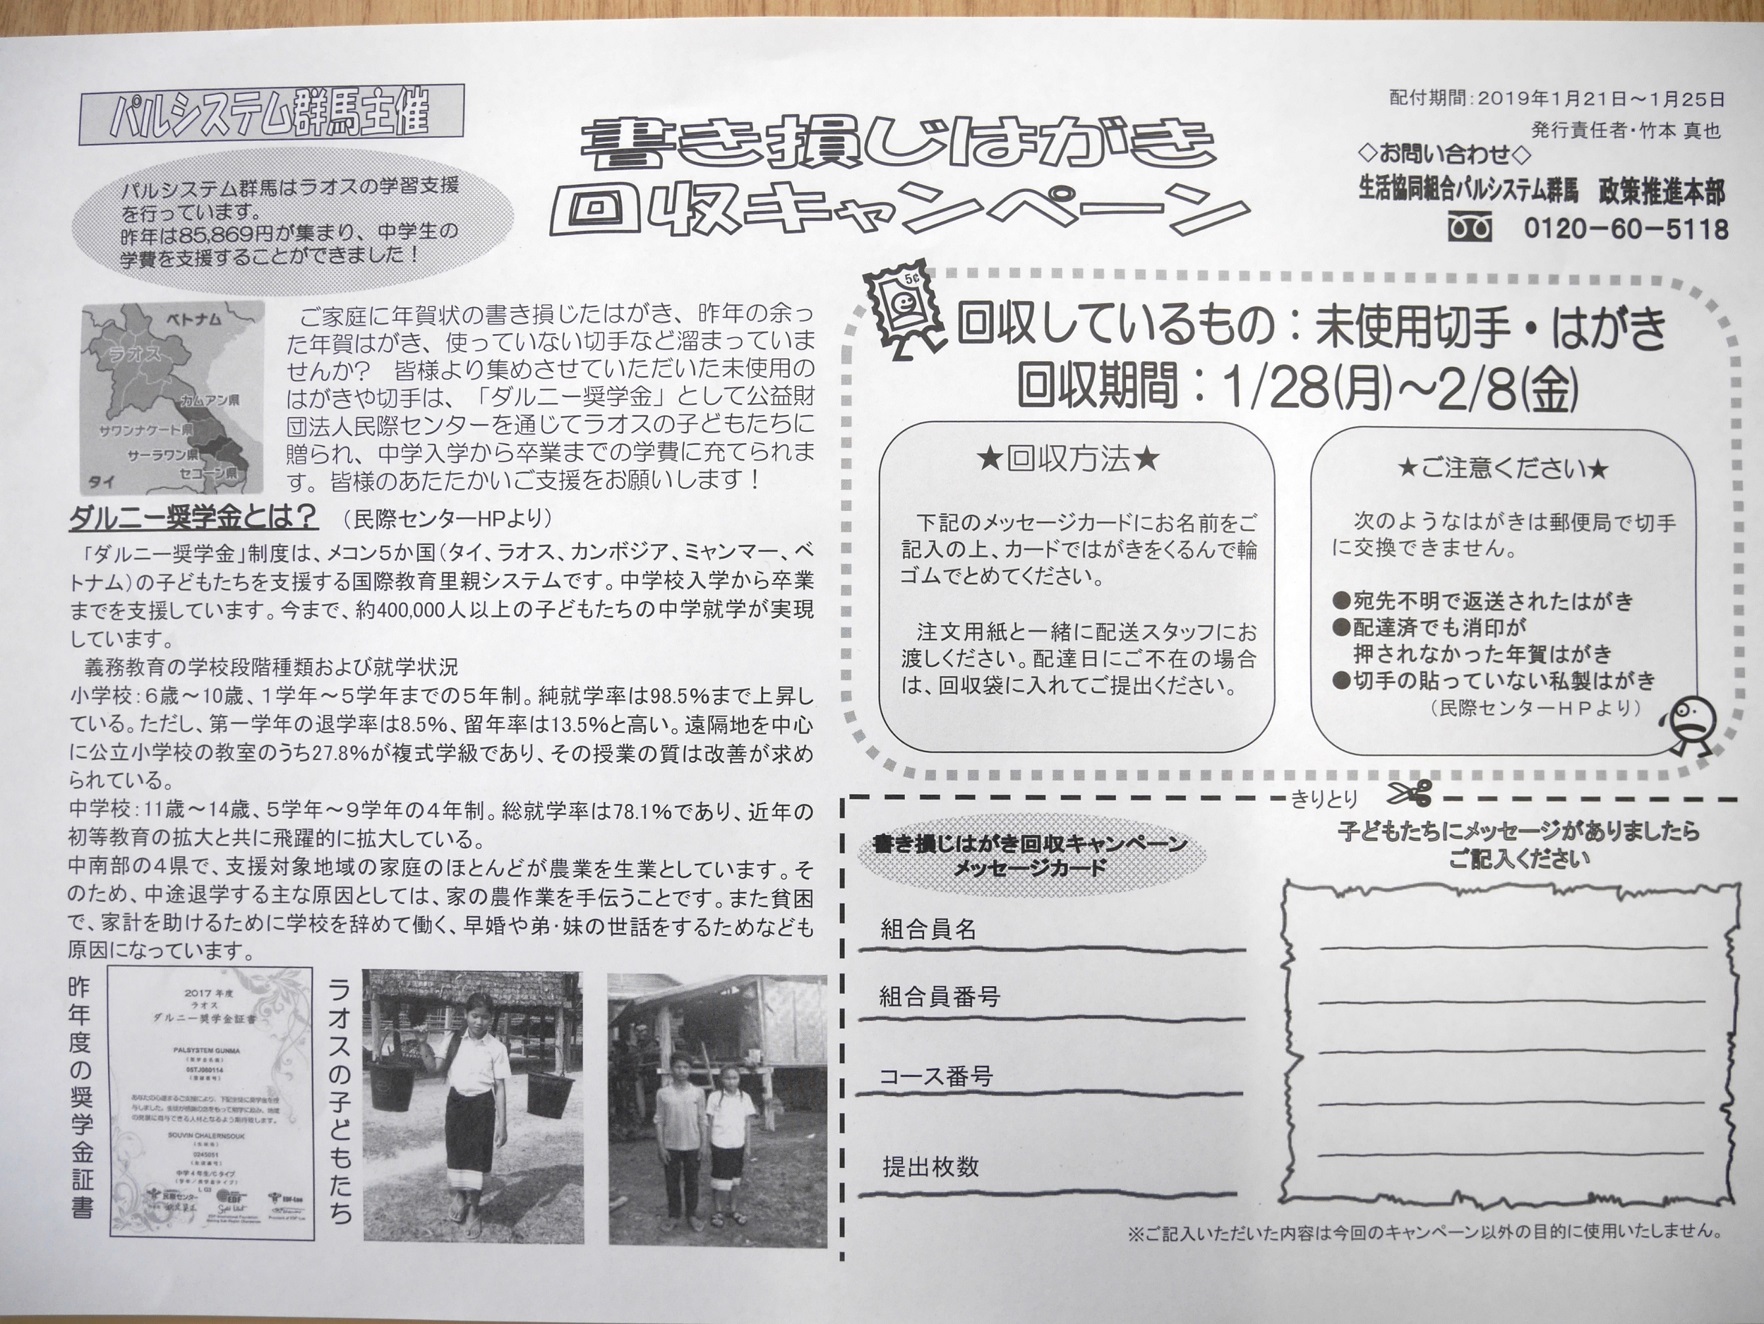 パルシステム群馬主催
パルシステム群馬はラオスの学習支援
を行っています。
昨年は85,869円が集まり、中学生の
学費を支援することができました！
書き損じはがき
回収キャンペーン
配付期間：2019年1月21日～1月25日
発行責任者・竹本 真也
◇お問い合わせ◇
生活協同組合パルシステム群馬　政策推進本部
0120－60－5118
ベトナム
ラオス
カムアン県
サワンナケート県
サーラワン県
セコーン県
タイ
ご家庭に年賀状の書き損じたはがき、昨年の余っ
た年賀はがき、使っていない切手など溜まっていま
せんか？　皆様より集めさせていただいた未使用の
はがきや切手は、「ダルニー奨学金」として公益財
団法人民際センターを通じてラオスの子どもたちに
贈られ、中学入学から卒業までの学費に充てられま
す。皆様のあたたかいご支援をお願いします！
ダルニー奨学金とは？　（民際センターHPより）
「ダルニー奨学金」制度は、メコン5か国（タイ、ラオス、カンボジア、ミャンマー、ベ
トナム）の子どもたちを支援する国際教育里親システムです。中学校入学から卒業
までを支援しています。今まで、約400,000人以上の子どもたちの中学就学が実現
しています。
義務教育の学校段階種類および就学状況
小学校：6歳～10歳、1学年～5学年までの5年制。純就学率は98.5％まで上昇し
ている。ただし、第一学年の退学率は8.5％、留年率は13.5％と高い。遠隔地を中心
に公立小学校の教室のうち27.8％が複式学級であり、その授業の質は改善が求め
られている。
中学校：11歳～14歳、5学年～9学年の4年制。総就学率は78.1％であり、近年の
初等教育の拡大と共に飛躍的に拡大している。
中南部の4県で、支援対象地域の家庭のほとんどが農業を生業としています。そ
のため、中途退学する主な原因としては、家の農作業を手伝うことです。また貧困
で、家計を助けるために学校を辞めて働く、早婚や弟・妹の世話をするためなども
原因になっています。
昨年度の奨学金証書
2017 年度
ラオス
ダルニー奨学金証書
PALSYSTEM GUNMA
SOUVIN CHALERNSOUK
0245051
民際センター
EDF
EDF-Lao
ラオスの子どもたち
5¢
回収しているもの：未使用切手・はがき
回収期間：1/28(月)～2/8(金)
★回収方法★
下記のメッセージカードにお名前をご
記入の上、カードではがきをくるんで輪
ゴムでとめてください。
注文用紙と一緒に配送スタッフにお
渡しください。配達日にご不在の場合
は、回収袋に入れてご提出ください。
★ご注意ください★
次のようなはがきは郵便局で切手
に交換できません。
●宛先不明で返送されたはがき
●配達済でも消印が
押されなかった年賀はがき
●切手の貼っていない私製はがき
（民際センターＨＰより）
きりとり
書き損じはがき回収キャンペーン
メッセージカード
組合員名
組合員番号
コース番号
提出枚数
子どもたちにメッセージがありましたら
ご記入ください
※ご記入いただいた内容は今回のキャンペーン以外の目的に使用いたしません。